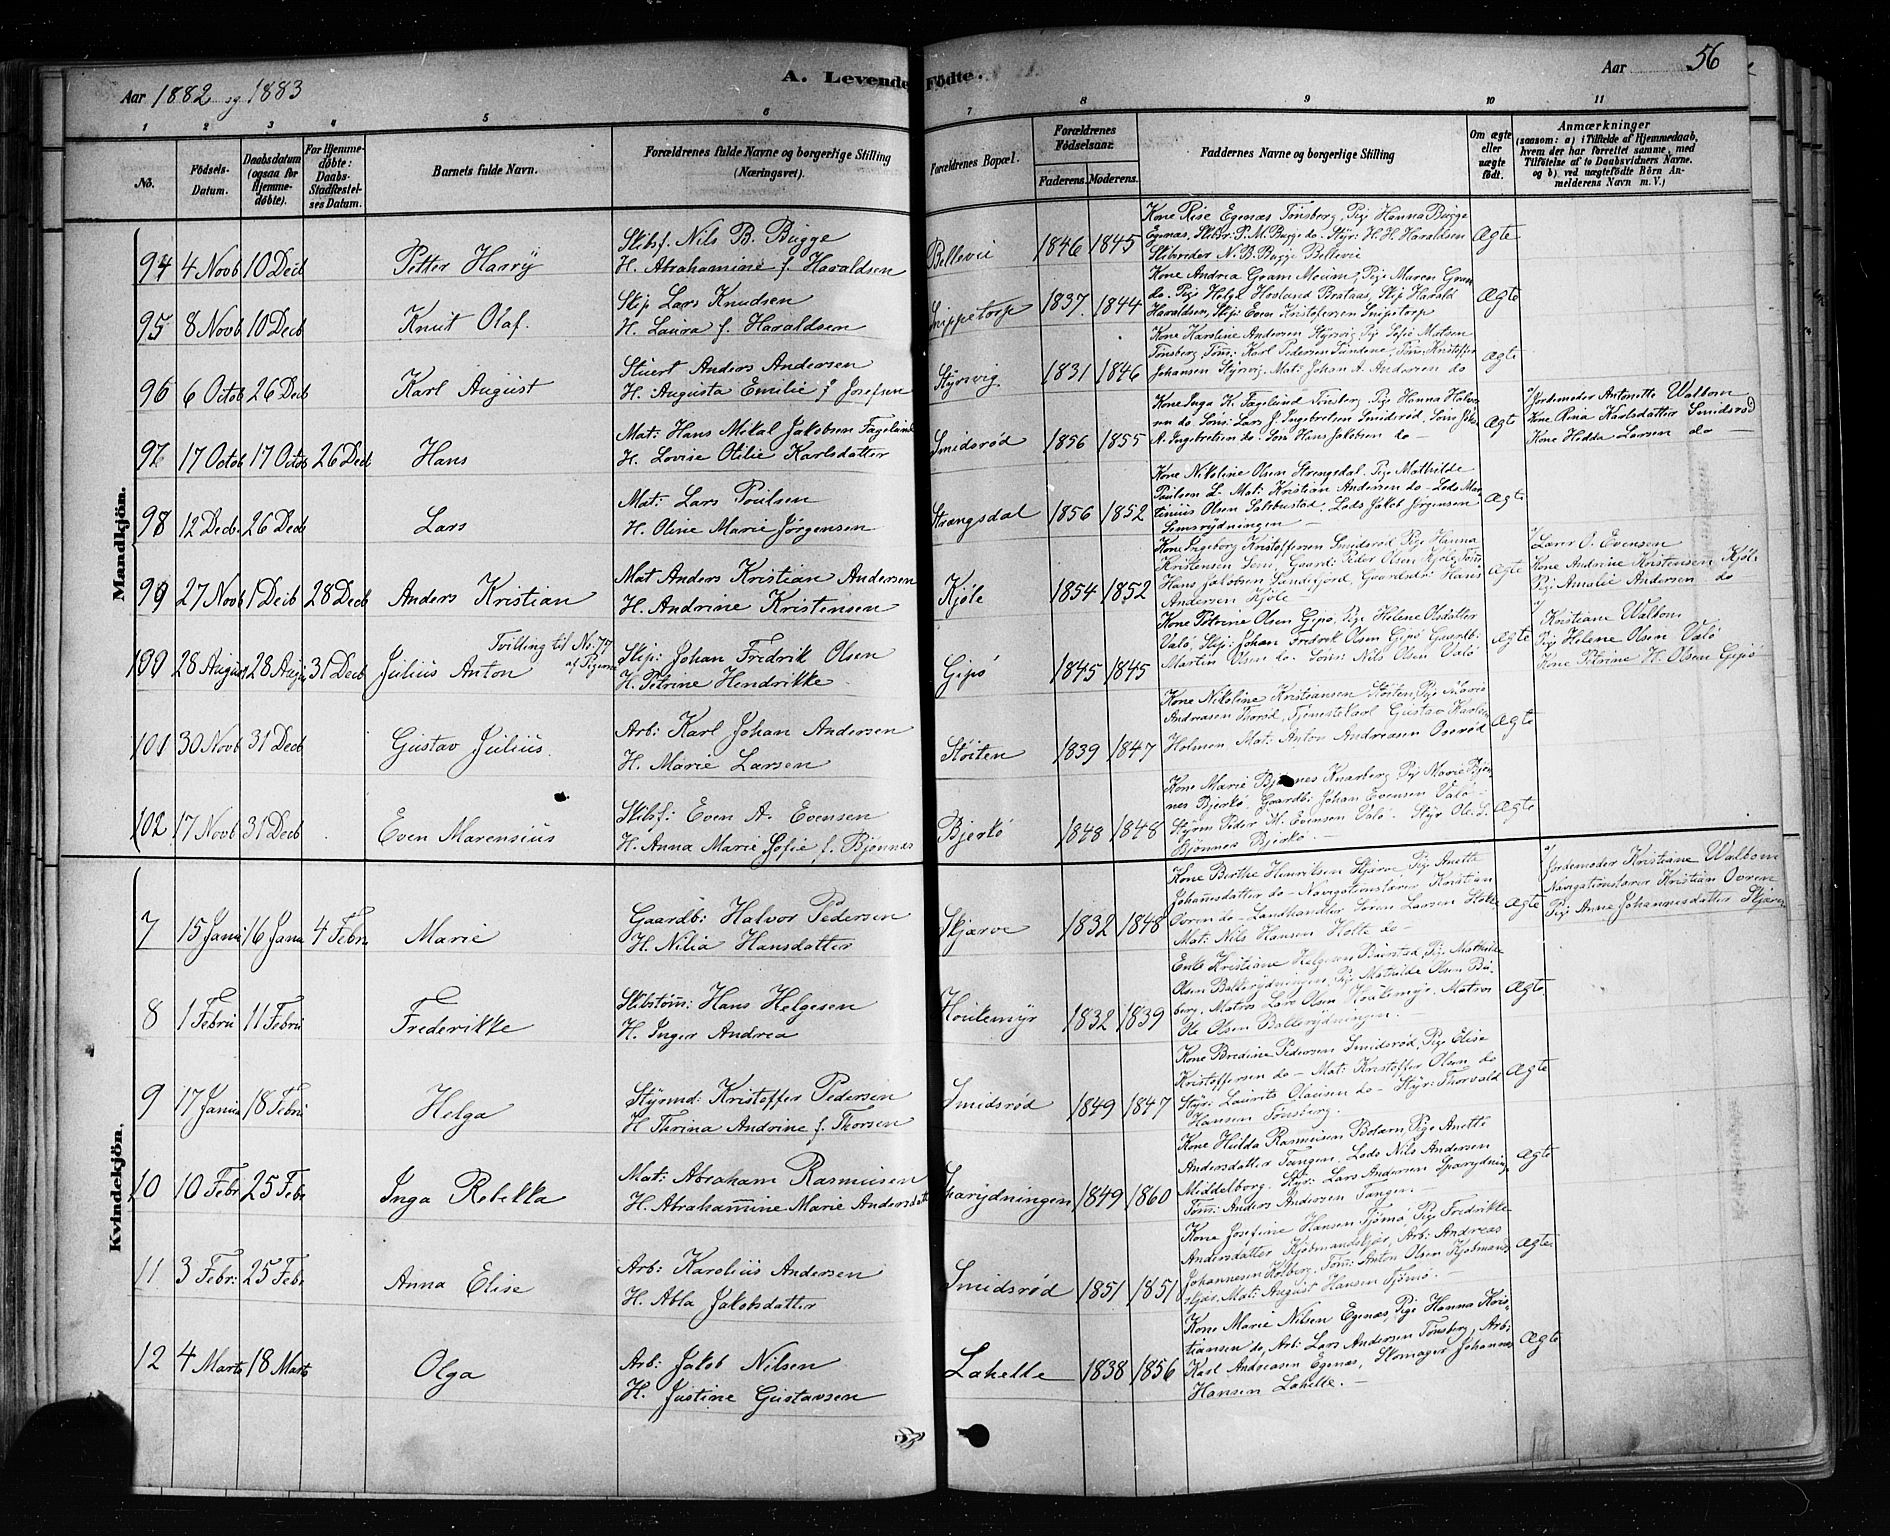 Aar 1882 og 1883
A. Levende Fødte.
Aar 56
1 2 3 4 5 6 7 8 9 10 11
No.
Fødsels-Datum.
Daabsdatum (ogsaa for Hjemmedøbte).
For Hjemmedøbte: Daabs-Stadfæstelses Datum.
Barnets fulde Navn.
Forældrenes fulde Navne og borgerlige Stilling (Næringsvei).
Forældrenes Bopæl.
Forældrenes Fødselsaar.
Faderens. Moderens.
Faddernes Navne og borgerlige Stilling
Om ægte eller uægte født.
Anmærkninger
(saasom: a) i Tilfælde af Hjemmedaab, hvem der har forrettet samme, med Tilføielse af to Daabsvidners Navne. og b) ved uægtefødte Børn Anmelderens Navn m. V.)
Mandkjön.
94 4 Novb 10 Decb Petter Harry
Skibsf. Nils B. Bugge
H. Abrahamine f. Haraldsen
Bellevue 1846 1845
Kone Rise Egenæs Tønsberg, Pige Hanna Bugge
Egenæs, Skibsr: P. M. Bugge do. Styr: H. H. Haraldsen
Skibsreder N. B. Bugge Bellevue
Ægte
95 8 Novb 10 Decb Knut Olaf.
Skip Lars Knudsen
H. Laura f. Haraldsen
Snippetorp 1837. 1844
Kone Andrea Gram Meum, Pige Maren Gram
do. Pige Helga Hosland Brataas, Skip Harald
Haraldsen, Skip: Even Kristoffersen Snipetorp
Ægte
96 6 Octob 26 Decb Karl August
Stuert Anders Andersen
H: Augusta Emilie f Josefsen
Styrsvig 1831 1846
Kone Karoline Andersen Styrsvig, Pige Sofie Matsen
Tønsberg, Tøm: Karl Pedersen Sundene, Tøm: Kristoffer
Johansen Styrsvig, Mat: Johan A. Andersen do
Ægte
97 17 Octob 17 Octob 26 Decb Hans
Mat: Hans Mikal Jakobsen Fagelund
H. Lovise Otilie Karlsdatter
Smidsrød 1856 1855
Kone Inga K. Fagelund Tønsberg, Pige Hanna Halvor
sen do Tøm: Lars J. Ingebretsen Smidsrød, Tøm: Joh:
A. Ingebretsen do. Tøm Hans Jakobsen do
Ægte
Jordemoder Antonette Walbom
Kone Rina Karlsdatter Smidsrød
Kone Hedda Larsen do
98 12 Decb. 26 Decb Lars
Mat: Lars Poulsen
H. Oline Marie Jørgensen
Strangsdal 1856 1852
Kone Nikoline Olsen Strengsdal. Pige Mathilde
Poulsen d. Mat: Kristian Andersen do. Lods Mar
tinius Olsen Salvbustad, Lods Jakob Jørgensen
Ægte
99 27 Novb 1 Decb 28 Decb Anders Kristian
Mat Anders Kristian Andersen
H. Andrine Kristensen
Kjøle 1854 1852
Kone Ingeborg Kristoffersen Smidsrød, Pige Hanna
Kristensen Sem, Gaard: Peder Olsen Kjøle, Tøm:
Hans Jakobsen Sandefjord, Gaardbr: Hans
Andersen Kjøle
Ægte
Lærer O. Evensen
Kone Andrine Kristensen Kjøle
Pige Amalie Andersen do
100 28 August 28 Augu 31 Decb Julius Anton
Tvilling til No: 77
af Pigerne
Skip: Johan Fredrik Olsen
H. Petrine Hendrikke
Gipø 1845 1845
Kone Petrine Olsen Gipø, Pige Helene Olsdatter
Valø, Skip: Johan Fredrik Olsen Gipø Gaardb:
Martin Olsen do. Tøm: Nils Olsen Valø
Ægte
Kristiane Walbom
Pige Helene Olsen Valø
Kone Petrine H. Olsen Gipø
101 30 Novb 31 Decb Gustav Julius.
Arb: Karl Johan Andersen
H. Marie Larsen
Støiten 1839 1847
Kone Nikoline Kristiansen Støiten, Pige Marie
Andreasen Thorød, Tjenestekarl Gustav Karlsen
Holmen Mat: Anton Andreasen Ovrerød
Ægte
102 17 Novb 31 Decb Even Marensius
Skibsf: Even A. Evensen
H. Anna Marie Sofie f. Bjønnes
Bjerkø 1848 1848
Kone Marie Bjønnes Knarberg, Pige Marie Bjøn
nes Bjerkø, Gaardb: Johan Evensen Valø
Styrm Peder M. Evensen Valø. Styr Ole S.
Bjønnes Bjerkø.
Ægte
Kvindekjön.
7 15 Janu 16 Janu 4 Febru Marie
Gaardb: Halvor Pedersen
H. Nilia Hansdatter
Skjærve 1832 1848
Kone Berthe Henriksen Skjærve, Pige Anette
Johannesdatter do - Navigationslærer Kristian
Ovren do - Landhandler Søren Larsen Holte
Mat: Nils Hansen Holte do
Ægte
Jordemoder Kristiane Walbom
Navigationslærer Kristian Ovren
Pige Anne Johannesdatter Skjærve
8 1 Febru 11 Febru Frederikke
Skibstøm: Hans Helgesen
H. Inger Andrea
Houkemyr 1832 1839
Olsen Bollerydningen, Pige Mathilde Olsen Bu
berg, Matros Lars Olsen Houkemyr, Matros
Ole Olsen Bollerydningen.
Ægte
9 17 Janua 18 Febru Helga
Styrmd: Kristoffer Pedersen
H Thrina Andrine f. Thorsen
Smidsrød 1849 1847
Kone Bredine Pedersen Smidsrød, Pige Elise
Kristoffersen do - Mat: Kristoffer Olsen do
Styr: Laurits Olausen do - Styr: Thorvald
Hansen Tønsberg.
Ægte
10 10 Febr 25 Febr Inga Rebekka
Mat: Abraham Rasmusen
H. Abrahamine Marie Andersdatt
Sparydningen 1849 1860
Kone Hulda Rasmusen Bolærn, Pige Anette
Andersdatter Tangen, Lods Nils Andersen
Middelborg. Styr: Lars Andersen Sparydning
Tøm: Anders Andersen Tangen.
Ægte
11 3 Febr: 25 Febr Anna Elise
Arb: Karolius Andersen
H. Abla Jakobsdatter
Smidsrød 1851 1851
Kone Josefine Hansen Tjømø, Pige Fredrikke
Andersdatter Kjøbmandskjær, Arb: Andreas
Johannesen Kolberg. Tøm: Anton Olsen Kjøbmand
skjær. Mat: August Hansen Tjømø.
Ægte
12 4 Marts 18 Marts Olga
Arb: Jakob Nilsen
H. Justine Gustavsen
Lahelle 1838 1856
Kone Marie Nilsen Egenæs, Pige Hanna Kris
tiansen do, Arb: Lars Andersen Tønsberg, Arb:
Karl Andreasen Egenæs, Skomager Johannes
Hansen Lahelle.
Ægte